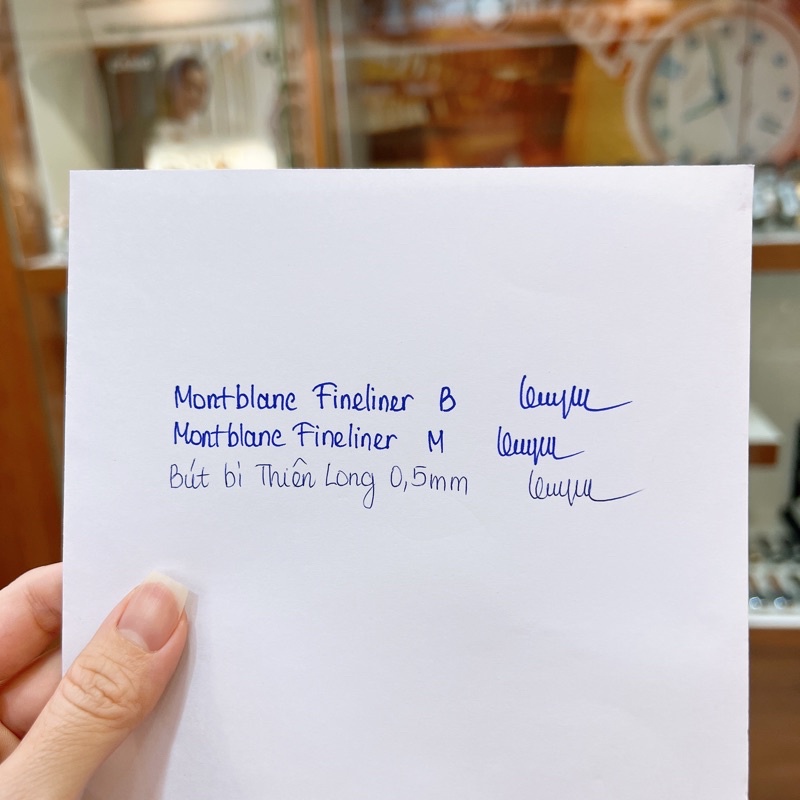 Montblanc Fineliner B
Montblanc Fineliner M
Bút bi Thiên Long 0,5mm